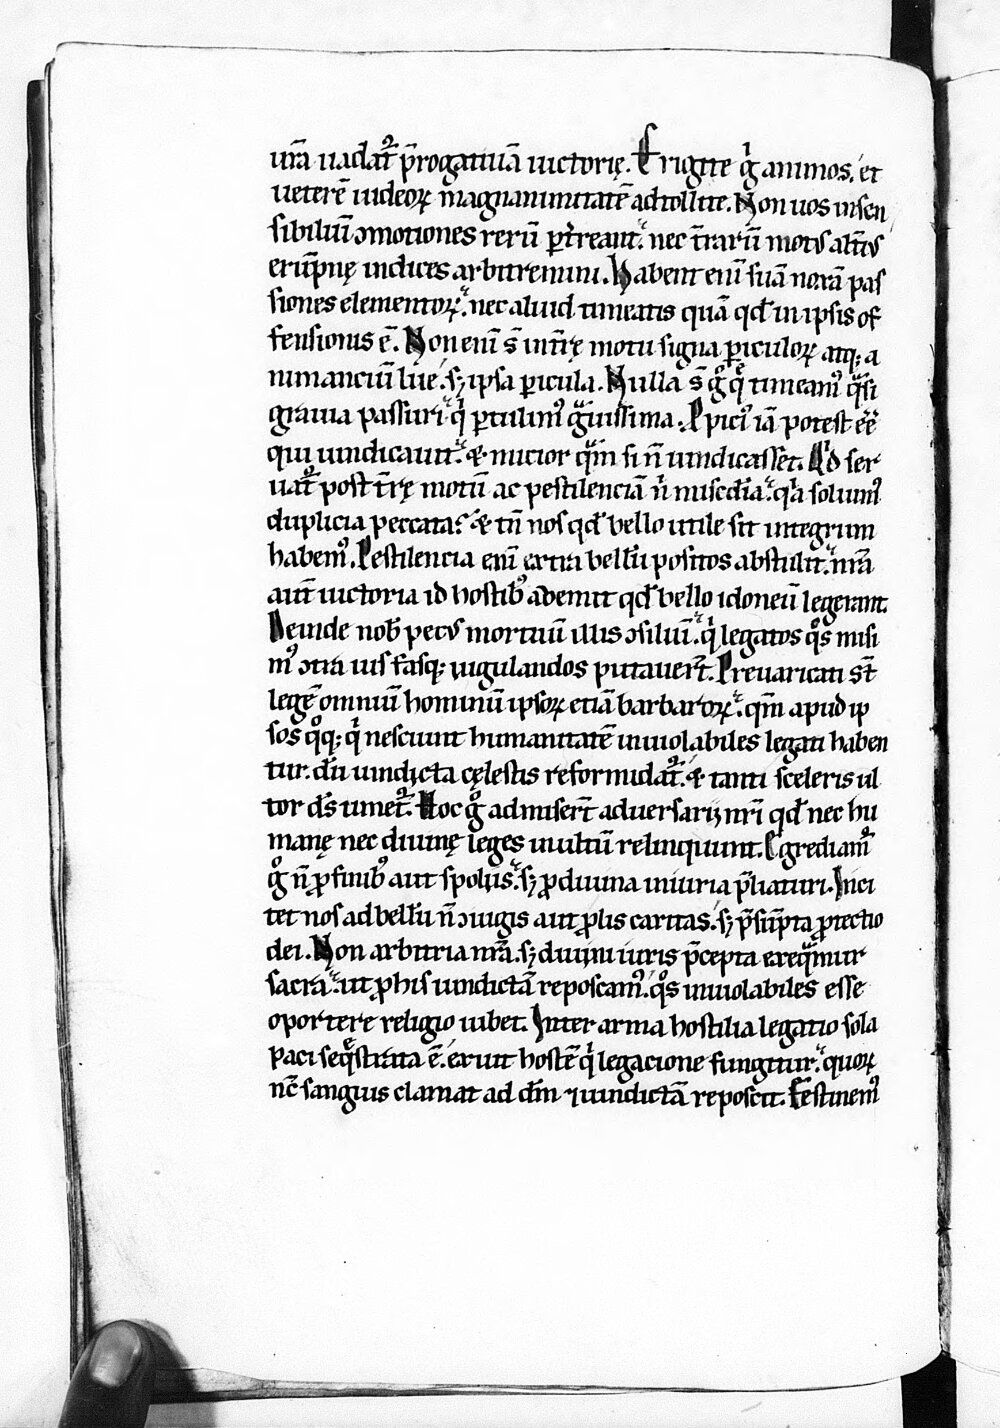 ur̄a uadat᷑ p̄rogatiuā uictorię. Erigite g̊ animos. et
ueterē iudeoꝝ magnanimitatē adtollite. Non uos insen
sibiliū ꝯmotiones rerū ꝑt̄reant. nec t̄rarū motꝰ alt̄iꝰ
erūpnę indices arbitremini. Habent enī suā natura pas
siones elementoꝝ. nec aliud timeatis quā qd̓ in ipsis of
fensionis ē. Non enī s̄ inīrę motu signa ꝑiculoꝝ atqꝫ a
nimanciū lue. sꝫ ipsa ꝑicula. Nulla s̄ gͦ q̄ timeamꝰ qͣsi
grauia passuri. qͥ ꝑtulimꝰ gͣuissima. Opiciꝰ iā potest eē
qui uindicauit. & micior qͣm si n̄ uindicasset. Ad ser
uat᷑ post t̄rę motū ac pestilenciā n̄ miscd̓ia. qͥa soluimꝰ
duplicia peccata? & tn̄ nos qd̓ bello utile sit integrum
habemꝰ. Pestilencia enī extra bellū positos abstulit. nr̄a
aut̄ uictoria id hostibꝰ ademit qd̓ bello idoneū legerant.
Deinde nob̄ pecꝰ mortuū illis ꝯsiliū. qͥ legatos qͦs misi
mꝰ ꝯtra ius fasqꝫ iugulandos putauer̄t. Preuaricati st̄
legē omniū hominū ipsoꝝ etiā barbaroꝝ. qm̄ apud ip
sos qͦqꝫ qͥ nesciunt humanitatē inuiolabiles legati haben
tur. dū uindicta cęlestis reformidat᷑. & tanti sceleris ul
tor ds̄ timet᷑. Hoc gͦ admiser̄t aduersarij nr̄i qd̓ nec hu
manę nec diuinę leges inultū relinquunt. Egrediam᷑
gͦ n̄ ꝓ finibꝰ aut spoliis. sꝫ ꝓ diuina iniuria p̄liaturi. Inci
tet nos ad bellū n̄ ꝯiugis aut ꝓlis caritas. sꝫ p̄sūpta ꝓtectio
dei. Non arbitria nr̄a. sꝫ diuini iuris p̄cepta exeqͣmur
sacra. ut ꝓ his uindictā reposcamꝰ. qͦs inuiolabiles esse
oportere religio iubet. Inter arma hostilia legatio sola
paci seq̄strata ē. exuit hostē qͥ legacione fungitur. quoꝝ
nc̄ sanguis clamat ad dm̄ ⁊ uindictā reposcit. Festinemꝰ